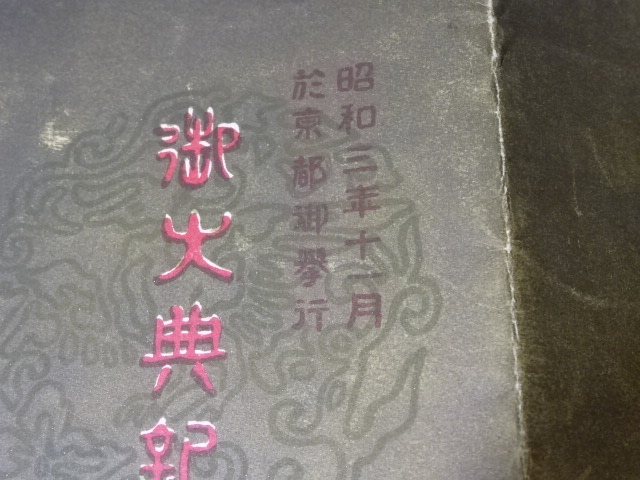 昭和三年十一月
於京都御擧行
御大典記